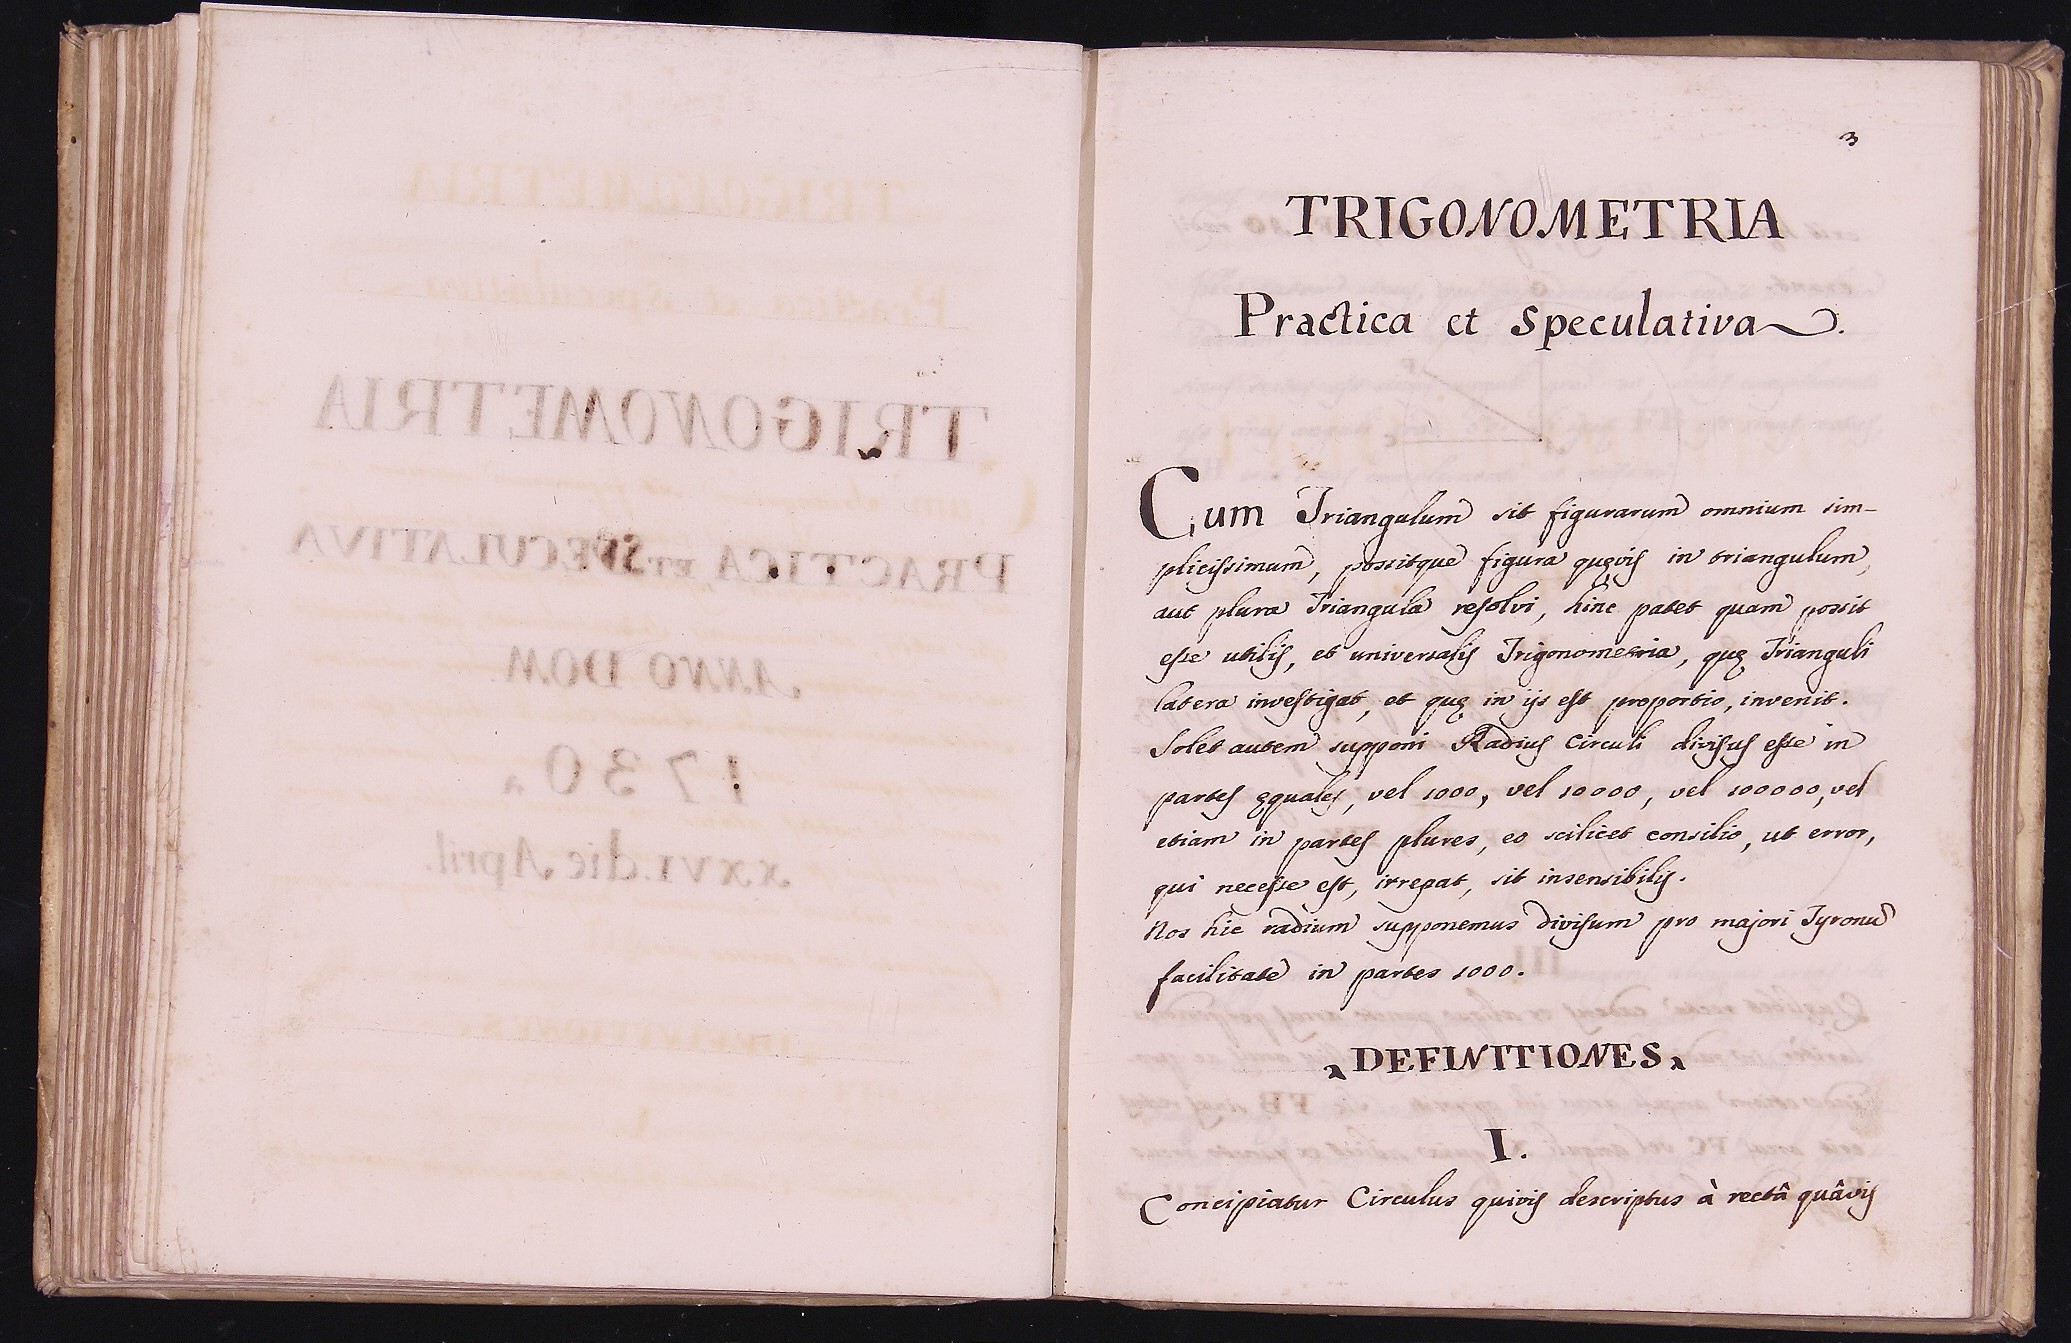 TRIGONOMETRIA
PRACTICA ET SPECULATIVA
ANNO DOM.
1730
XXVI. die April.
3
TRIGONOMETRIA
Practica et Speculativa.
Cum Triangulum sit figurarum omnium sim-
plicissimum, possitque figura quęvis in triangulum,
aut plura Triangula resolvi, hinc patet quam possit
esse utilis, et universalis Trigonometria, quę Trianguli
latera investigat, et quę in ijs est proportio, invenit.
Solet autem supponi Radius Circuli divisus esse in
partes ęquales, vel 1000, vel 10000, vel 100000, vel
etiam in partes plures, eo scilicet consilio, ut error,
qui necesse est, irrepat, sit insensibilis.
Nos hic radium supponemus divisum pro majori Tyronũ
facilitate in partes 1000.
DEFINITIONES
I.
Concipiatur Circulus quivis descriptus à rectâ quâvis